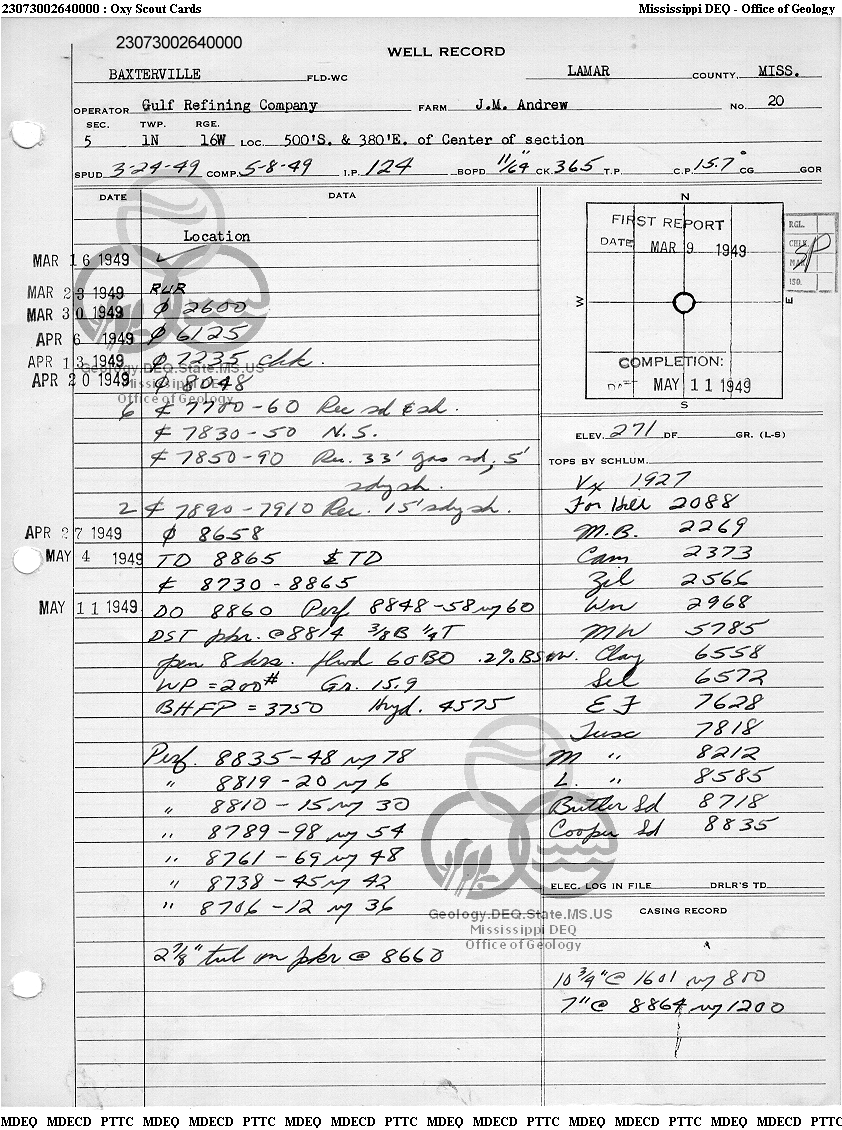 23073002640000 : Oxy Scout Cards Mississippi DEQ - Office of Geology
23073002640000
WELL RECORD
BAXTERVILLE FLD-WC LAMAR COUNTY, MISS.
OPERATOR Gulf Refining Company FARM J.M. Andrew No. 20
SEC. TWP. RGE.
5 1N 16W LOC. 500'S. & 380'E. of Center of section
SPUD 3-24-49 COMP. 5-8-49 I.P. 124 BOPD 11/64" CK. 365 T.P. C.P. 15.7° CG GOR
DATE DATA
Location
MAR 16 1949 ✓
MAR 23 1949 RUR
MAR 30 1949 ⌀ 2600
APR 6 1949 ⌀ 6125
APR 13 1949 ⌀ 7235 chk.
APR 20 1949 ⌀ 8048
6 ¢ 7700-60 Rec sd & sh.
¢ 7830-50 N.S.
¢ 7850-90 Rec. 33' gas sd, 5'
sdy sh.
2 ¢ 7890-7910 Rec. 15' sdy sh.
APR 27 1949 ⌀ 8658
MAY 4 1949 TD 8865 & TD
¢ 8730-8865
MAY 11 1949 DO 8860 Perf 8848-58 w/60
DST pkr. @ 8814 3/8B 1/4T
open 8 hrs. flwd 60 BO .2% BS&W.
WP = 200# Gr. 15.9
BHFP = 3750 Hyd. 4575
Perf. 8835-48 w/ 78
" 8819-20 w/ 6
" 8810-15 w/ 30
" 8789-98 w/ 54
" 8761-69 w/ 48
" 8738-45 w/ 42
" 8706-12 w/ 36
2 7/8" tub on pkr @ 8660
N
FIRST REPORT
DATE MAR 9 1949
W E
COMPLETION:
DATE MAY 11 1949
S
RGL.
CHLK.
MAP
ISO.
ELEV. 271 DF. GR. (L-S)
TOPS BY SCHLUM.
Vx 1927
For Hill 2088
M.B. 2269
Cam 2373
Zil 2566
Wn 2968
MW 5785
Clay 6558
Sel 6572
EF 7628
Tusc 7818
M " 8212
L. " 8585
Butler Sd 8718
Cooper Sd 8835
ELEC. LOG IN FILE DRLR'S TD
CASING RECORD
10 3/4" @ 1601 w/ 800
7" @ 8864 w/ 1200
Geology.DEQ.State.MS.US
Mississippi DEQ
Office of Geology
Geology.DEQ.State.MS.US
Mississippi DEQ
Office of Geology
MDEQ MDECD PTTC MDEQ MDECD PTTC MDEQ MDECD PTTC MDEQ MDECD PTTC MDEQ MDECD PTTC MDEQ MDECD PTTC